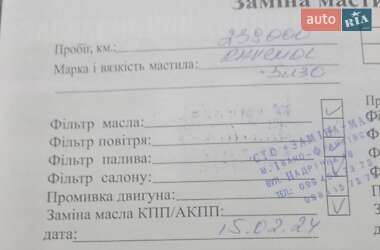 Заміна масти
auto RIA
Пробіг, км.: 239000
Марка і вязкість мастила: RAVENOL
5W30
Фільтр масла:
Фільтр повітря:
Фільтр палива:
Фільтр салону:
Промивка двигуна:
Заміна масла КПП/АКПП:
дата: 15.02.24
СТО "ЗАМІНА МА